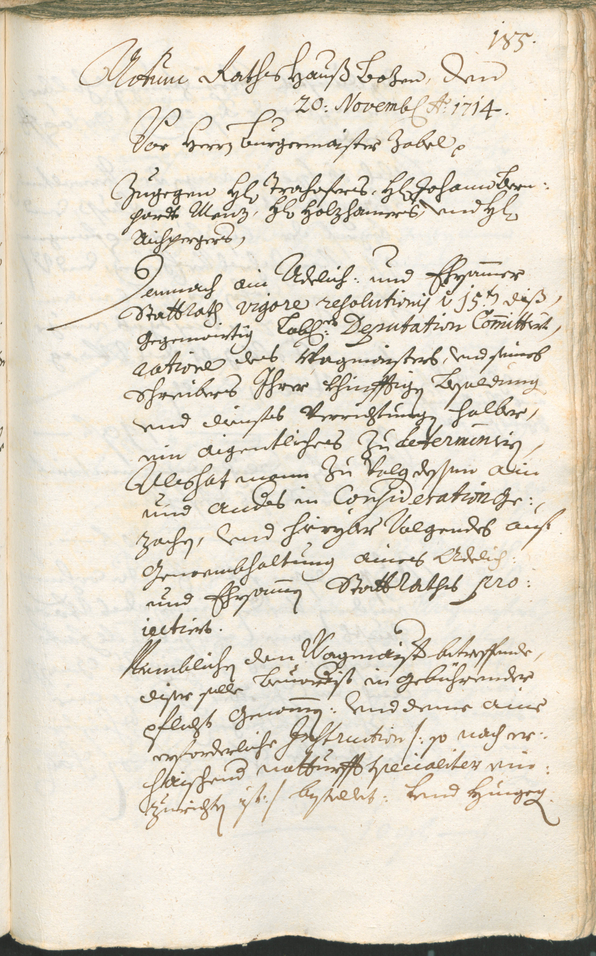 185.
Actum Raths Hauß Botzen, den
20: Novemb: Ao: 1714.
Vor Herrn Burgermaister Zobel,
Zugegen Hl: Hl: Johann Bern:
hardt Menz, Hl: Holzhamers, und Hl:
Aichpergers,
Demnach ain Adelich: und Ehrsamer
Stattrath vigore resolutionis 15ten diß,
gegenwertig Lobl: Deputation Committirt,
ratione des Wagmaisters, und seines
Schreibers Ihrer khünfftigen Besoldung
und dienst Verrichtungen halber,
ein aigentliches zu determiniren,
Alß hat mann zu Volg dessen ain
und anders in Consideration ge:
zochen, und hieryber Volgendes auf
genembhaltung aines Adelich:
und Ehrsamen StattRaths pro:
iectiert.
Nemblichen den Wagmaister betreffende,
diser solle in gebührender
pflicht genommen: und deme aine
erforderliche Instruction /: so nach er:
haischend notturfft specialiter ein:
zurichten ist :/ bestellet: und hingegen